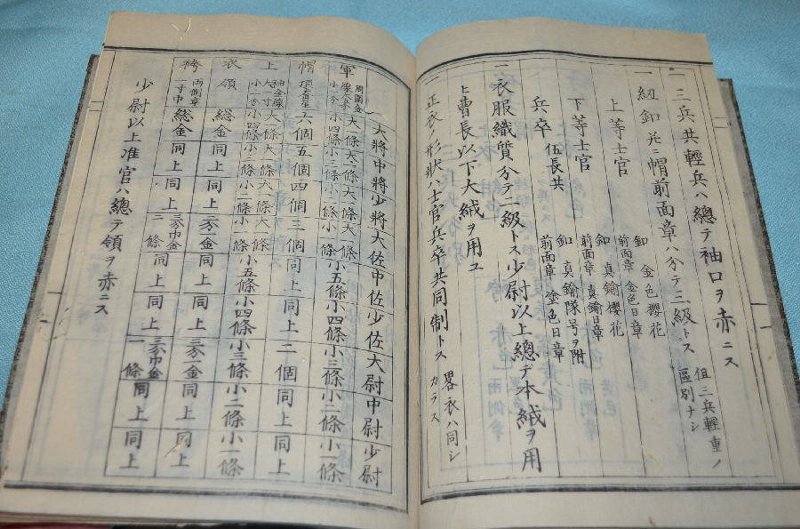 一 三兵共輕兵ハ總テ袖口ヲ赤ニス
一 釦並ニ帽前面章ハ分テ三級トス 但三兵輕重ノ區別ナシ
上等士官 釦 金色櫻花 前面章 金色日章
下等士官 釦 真鍮櫻花 前面章 真鍮日章
兵卒 伍長共 釦 真鍮隊号ヲ附 前面章 塗色日章
一 衣服織質分テ二級トス少尉以上總テ本絨ヲ用
ヒ曹長以下大絨ヲ用ユ
一 正衣ノ形状ハ士官兵卒共同制トス 畧衣ハ同シカラス
大將 中將 少將 大佐 中佐 少佐 大尉 中尉 少尉
軍 小五條 小四條 小三條 小三條 小二條 小一條
帽 六個 五個 四個 三個 同上 同上 二個 同上 同上
上 小六條 小五條 小四條 小三條 小二條 小一條
衣 領 總金 同上 同上 同上 同上 同上 同上
袴 兩側章 總金 同上 同上 三條 同上 同上 一條 同上 同上
少尉以上准官ハ總テ領ヲ赤ニス